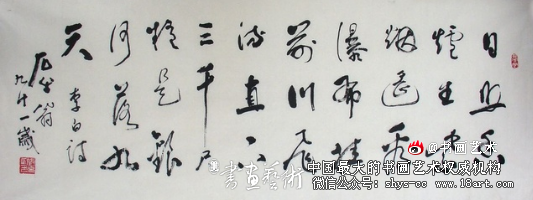 日照香
爐生紫
烟遥看
瀑布挂
前川飛
流直下
三千尺
疑是銀
河落九
天 李白诗
翁
九十一歲
@书画艺术
中国最大的书画艺术权威机构
微信公众号: shys-cc www.18art.com
書畫藝術